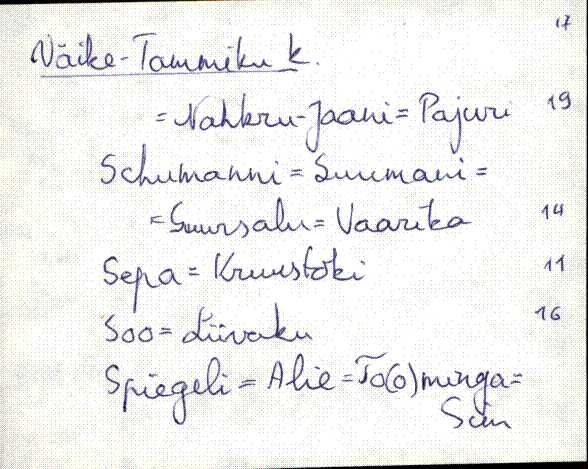 17
Väike-Tammiku k.
= Nahkru-Jaani = Pajuri 19
Schumanni = Suumani =
= Suursalu = Vaarika 14
Sepa = Kruustöki 11
Soo = Liivaku 16
Spiegeli = Alie =